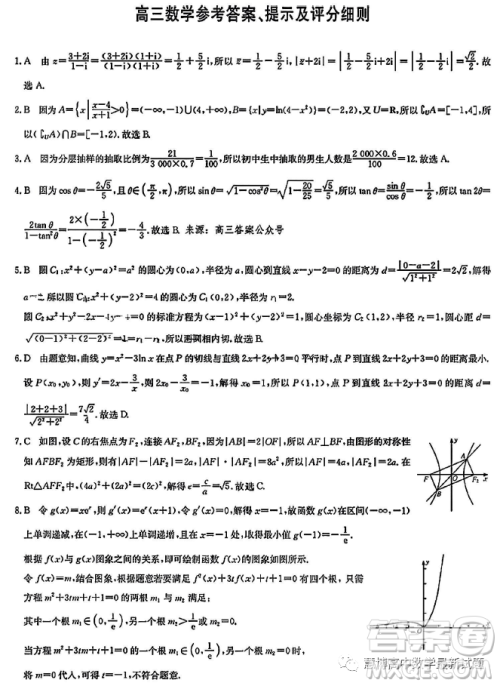 高三数学参考答案、提示及评分细则
1. A 由 z=\frac{3+2i}{1-i}=\frac{(3+2i)(1+i)}{(1-i)(1+i)}=\frac{1}{2}+\frac{5}{2}i,所以 \bar{z}=\frac{1}{2}-\frac{5}{2}i,所以 |\bar{z}+2i|=|\frac{1}{2}-\frac{5}{2}i+2i|=|\frac{1}{2}-\frac{1}{2}i|=\frac{\sqrt{2}}{2}.故
选 A.
2. B 因为 A={x|\frac{x-4}{x+1}>0}=(-∞,-1)∪(4,+∞),B={x|y=ln(4-x²)}=(-2,2),又 U=R,所以 ∁_UA=[-1,4],所
以(∁_UA)∩B=[-1,2).故选 B.
3. A 因为分层抽样的抽取比例为\frac{21}{3 000×0.7}=\frac{1}{100},所以初中生中抽取的男生人数是\frac{2 000×0.6}{100}=12.故选 A.
4. B 因为 cos θ=-\frac{2\sqrt{5}}{5},且 θ∈(\frac{π}{2},π),所以 sin θ=\sqrt{1-cos²θ}=\sqrt{1-\frac{20}{25}}=\frac{\sqrt{5}}{5},所以 tan θ=\frac{sin θ}{cos θ}=-\frac{1}{2},所以 tan 2θ=
\frac{2tan θ}{1-tan²θ}=\frac{2×(-\frac{1}{2})}{1-(-\frac{1}{2})²}=-\frac{4}{3}.故选 B. 来源:高三答案公众号
5. B 圆 C₁:x²+(y-a)²=a² 的圆心为(0,a),半径为 a,圆心到直线 x-y-2=0 的距离为 d=\frac{|0-a-2|}{\sqrt{1²+1²}}=2\sqrt{2},解得
a=2.所以圆 C₁:x²+(y-2)²=4 的圆心为 C₁(0,2),半径为 r₁=2.
圆 C₂:x²+y²-2x-4y+4=0 的标准方程为(x-1)²+(y-2)²=1,圆心坐标为 C₂(1,2),半径 r₂=1,圆心距 d=
\sqrt{(0-1)²+(2-2)²}=1=r₁-r₂,所以两圆内切.故选 B.
6. D 由题意知,曲线 y=x²-3ln x 在点 P 的切线与直线 2x+2y+3=0 平行时,点 P 到直线 2x+2y+3=0 的距离最小.
设 P(x₀,y₀),则 y′=2x-\frac{3}{x},则 2x₀-\frac{3}{x₀}=-1,解得 x₀=1,所以 P(1,1),点 P 到直线 2x+2y+3=0 的距离 d=
\frac{|2+2+3|}{\sqrt{2²+2²}}=\frac{7\sqrt{2}}{4}.故选 D.
7. C 如图,设 C 的右焦点为 F₂,连接 AF₂,BF₂,因为|AB|=2|OF|,所以 AF⊥BF,由图形的对称性
知 AFBF₂ 为矩形,则有|AF|-|AF₂|=2a,|AF|·|AF₂|=8a²,所以|AF|=4a,|AF₂|=2a.在
Rt△AFF₂ 中,(4a)²+(2a)²=(2c)²,解得 e=\frac{c}{a}=\sqrt{5}.故选 C.
8. B 令 g(x)=xeˣ,则 g′(x)=eˣ(x+1),令 g′(x)=0,解得 x=-1,故函数 g(x)在区间(-∞,-1)
上单调递减,在(-1,+∞)上单调递增,且在 x=-1 处,取得最小值 g(-1)=-\frac{1}{e}.
根据 f(x)与 g(x)图象之间的关系,即可绘制函数 f(x)的图象如图所示.
令 f(x)=m,结合图象,根据题意若要满足 f²(x)+3tf(x)+t+1=0 有四个根,只需
方程 m²+3tm+t+1=0 的两根 m₁ 与 m₂ 满足:
其中一个根 m₁∈(0,\frac{1}{e}),另一个根 m₂>\frac{1}{e}或 m₂=0.
当方程 m²+3tm+t+1=0 的一个根 m₁∈(0,\frac{1}{e}),另一个根 m₂=0,
将 m=0 代入,可得 t=-1,不符合题意.